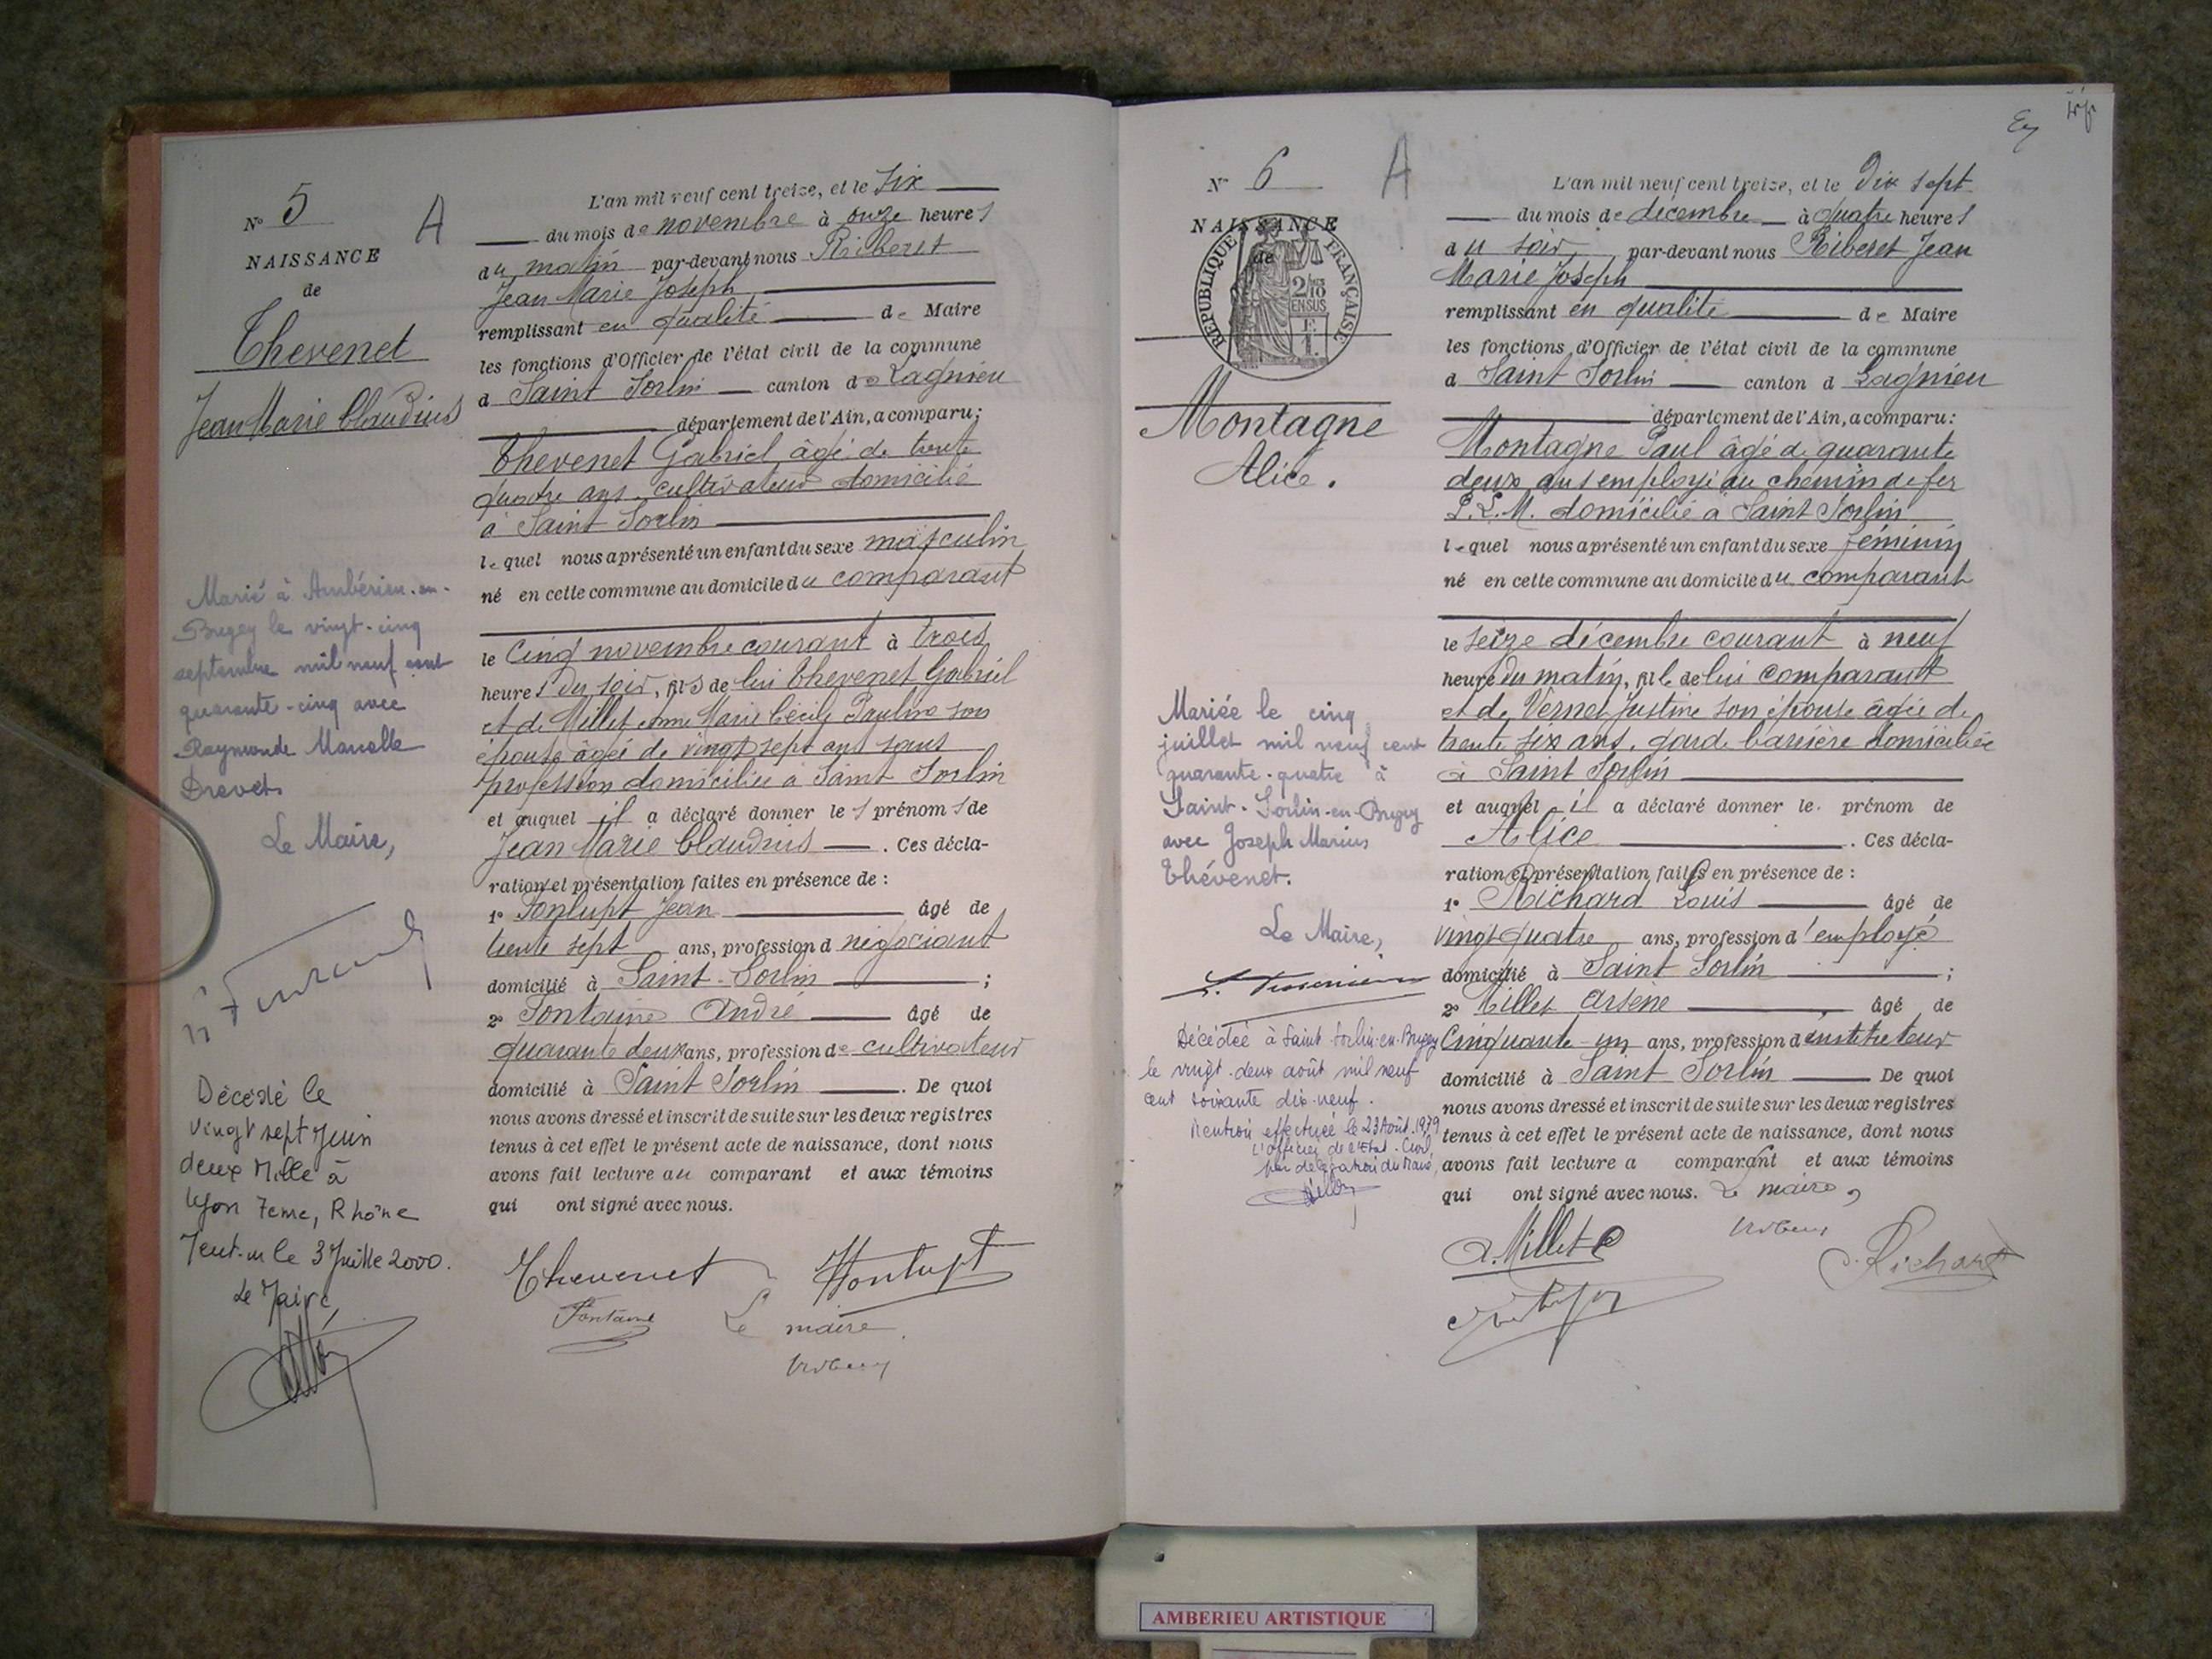 N° 5
A
NAISSANCE
de
Thevenet
Jean Marie Claudius
Marié à Ambérieu-en-
Bugey le vingt-cinq
septembre mil neuf cent
quarante-cinq avec
Raymonde Marcelle
Drevet
Le Maire,
Décédé le
vingt sept Juin
deux Mille à
Lyon 7eme, Rhône
le 3 Juillet 2000.
Le Maire,
L'an mil neuf cent treize, et le six
du mois de novembre à onze heures
du matin par-devant nous Riberet
Jean Marie Joseph
remplissant en qualité de Maire
les fonctions d'Officier de l'état civil de la commune
d Saint Sorlin canton de Lagnieu
département de l'Ain, a comparu:
Thevenet Gabriel âgé de trente
quatre ans cultivateur domicilié
à Saint Sorlin
lequel nous a présenté un enfant du sexe masculin
né en cette commune au domicile du comparant
le cinq novembre courant à trois
heures du soir, fils de lui Thevenet Gabriel
et de Millet Marie Cécile Pauline son
épouse âgée de vingt sept ans sans
profession domiciliée à Saint Sorlin
et auquel il a déclaré donner les prénoms de
Jean Marie Claudius. Ces décla-
ration et présentation faites en présence de :
1° Fonlupt Jean âgé de
trente sept ans, profession d négociant
domicilié à Saint-Sorlin ;
2° Fontaine André âgé de
quarante deux ans, profession de cultivateur
domicilié à Saint Sorlin. De quoi
nous avons dressé et inscrit de suite sur les deux registres
tenus à cet effet le présent acte de naissance, dont nous
avons fait lecture au comparant et aux témoins
qui ont signé avec nous.
Thevenet Fonlupt
Fontaine Le maire
N° 6
A
NAISSANCE
de
RÉPUBLIQUE FRANÇAISE
2/10
EN SUS
Montagne
Alice.
Mariée le cinq
juillet mil neuf cent
quarante-quatre à
Saint-Sorlin-en-Bugey
avec Joseph Marius
Thévenet.
Le Maire,
Décédée à Saint Sorlin-en-Bugey
le vingt-deux août mil neuf
cent soixante dix-neuf.
Mention effectuée le 23 Août 1979
L'officier de l'Etat-Civil,
par délégation du Maire,
L'an mil neuf cent treize, et le dix sept
du mois de décembre à quatre heures
du soir par-devant nous Riberet Jean
Marie Joseph
remplissant en qualité de Maire
les fonctions d'Officier de l'état civil de la commune
d Saint Sorlin canton d Lagnieu
département de l'Ain, a comparu:
Montagne Paul âgé de quarante
deux ans employé au chemin de fer
P.L.M. domicilié à Saint Sorlin
lequel nous a présenté un enfant du sexe féminin
né en cette commune au domicile du comparant
le seize décembre courant à neuf
heure du matin, fille de lui comparant
et de Vernet Justine son épouse âgée de
trente six ans, garde barrière domiciliée
à Saint Sorlin
et auquel il a déclaré donner le prénom de
Alice. Ces décla-
ration et présentation faites en présence de :
1° Richard Louis âgé de
vingt quatre ans, profession d'employé
domicilié à Saint Sorlin ;
2° Millet Arsène âgé de
Cinquante-un ans, profession d instituteur
domicilié à Saint Sorlin De quoi
nous avons dressé et inscrit de suite sur les deux registres
tenus à cet effet le présent acte de naissance, dont nous
avons fait lecture a comparant et aux témoins
qui ont signé avec nous. Le maire,
A. Millet
Richard
AMBERIEU ARTISTIQUE